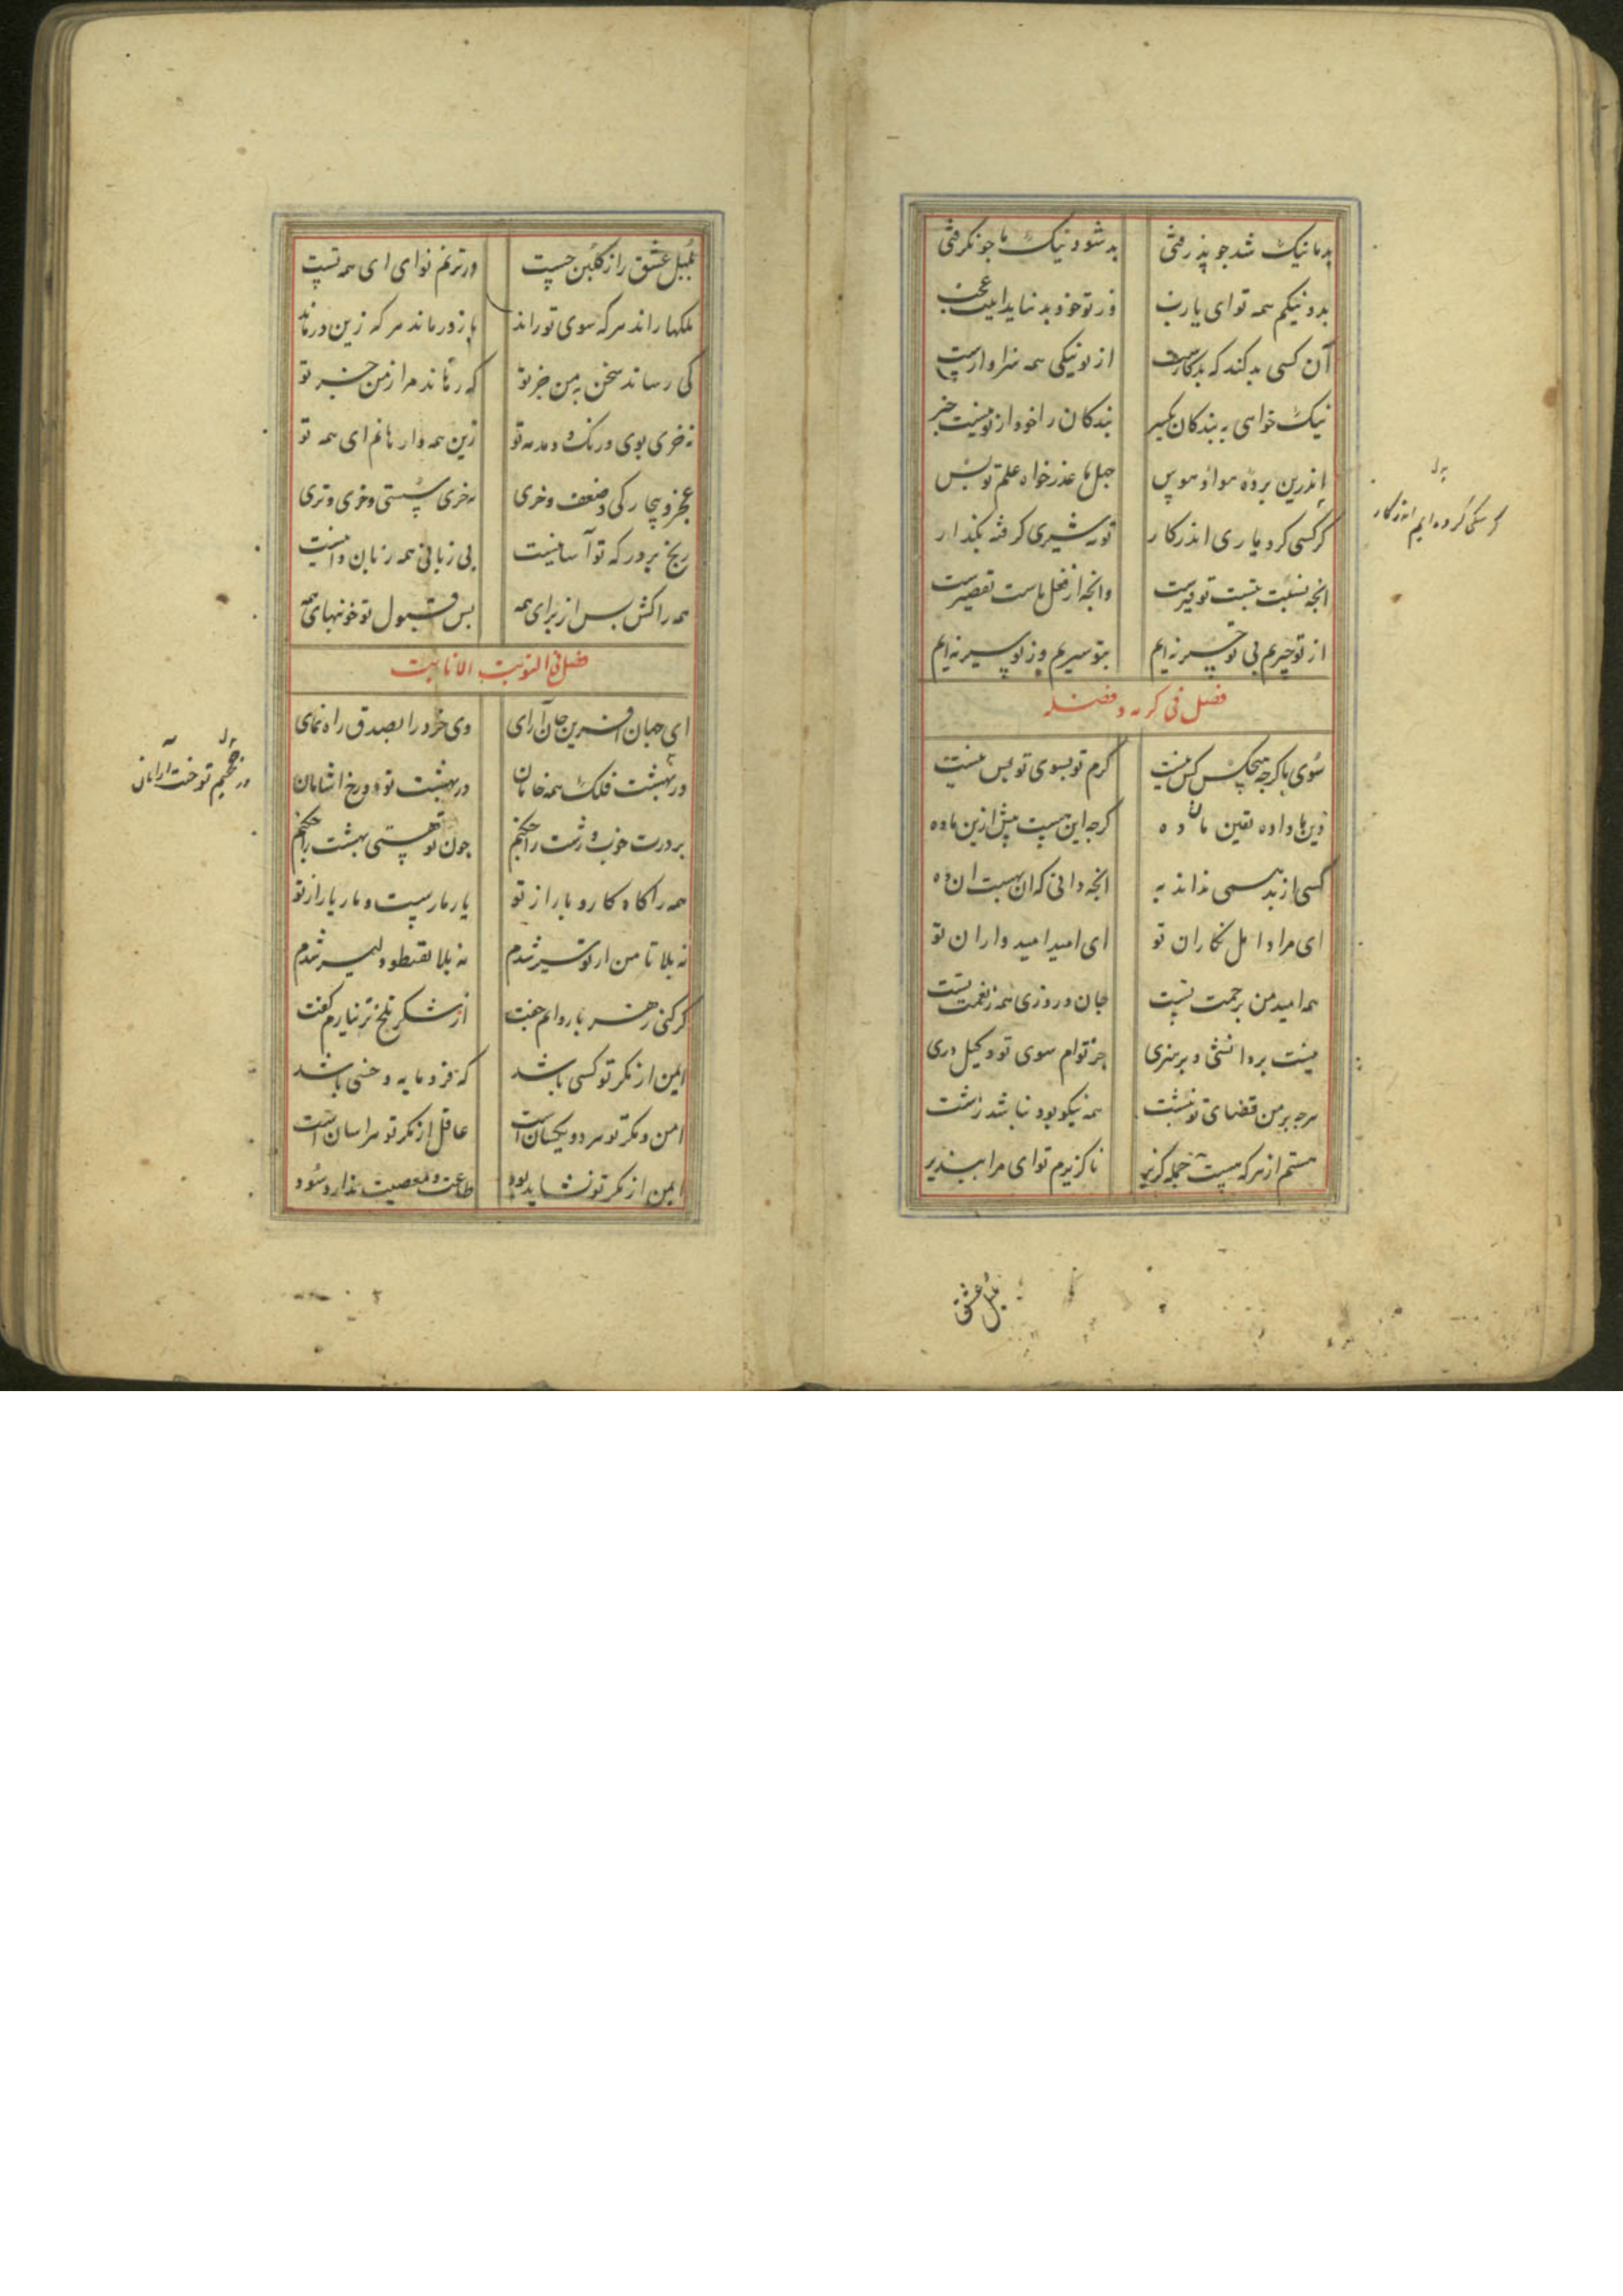 بد ما نیک شد جو پذرفتی بد شود نیک ما جو نکرفتی
بد و نیکم همه توای یارب وز تو خود بد نیاید اینت عجب
آن کسی بد کند که بدکارست از تو نیکی همه سزاوارست
نیک خواهی به بندکان یکسر بندکان را خود از تو نیست خبر
اندرین برده هوا و هوس جهل ما عذر خواه علم تو بس
کر سکی کرد یاری اندر کار تو به شیری کرفته بکذار
انجه نسبت بتست توفیرست وانجه از فعل ماست تقصیرست
از تو چیریم بی تو چیر نه ایم بتو سیریم وز تو سیر نه ایم
فصل فی کرمه و فضله
سوی ما کرجه هیجکس کس نیست کرم تو بسوی تو بس نیست
دین ما داده یقین مان ده کرجه این هست بیش ازین ما ده
کسی از بد همی نداند به انجه دانی که ان بهست ان ده
ای مراد امل نکاران تو ای امید امیدواران تو
همه امید من برحمت تست جان و روزی همه ز نعمت تست
نیست بر دانشی و بر هنری جز توام سوی تو وکیل دری
هرجه بر من قضای تو نبشت همه نیکو بود نباشد زشت
هستم از هرکه هست جمله کزیر ناکزیرم توای مرا بپذیر
بدل
کر سکی کرده ایم اندر کار
بلبل عشق
بلبل عشق را ز کلبن جست در ترنم نوای ای همه تست
ملکها راند هرکه سوی تو راند باز درماند هرکه زین درماند
کی رساند سخن به من جز تو که رهاند مرا ز من جز تو
نه خری بوی و رنک و دمدمه تو زین همه وا رهانم ای همه تو
عجز و بیجارکی و ضعف و خری نه خری سستی و خری و تری
رنج برور که تو آسانیست بی زبانی همه زبان دانیست
همه را کش بس از برای همه بس قبول تو خونبهای همه
فصل فی التوبت الانابت
ای جهان افرین جان آرای وی خرد را بصدق راه نمای
در بهشت فلک همه خامان در بهشت تو دوزخ اشامان
بر درت خوب و زشت را جکنم جون تو هستی بهشت را جکنم
همه را کاه کار و بار از تو یار مارست و مار یار از تو
نه بلا تا من از تو سیر شدم نه بلا تقنطوا دلیر شدم
کر کنی زهر با روانم جفت از شکر تلخ تر نیارم کفت
ایمن از مکر تو کسی باشد که فرومایه و خسی باشد
امن و مکر تو هر دو یکسان است عاقل از مکر تو هراسان است
ایمن از مکر تو نشاید بود طاعت و معصیت ندارد سود
بدل
در جحیم تو